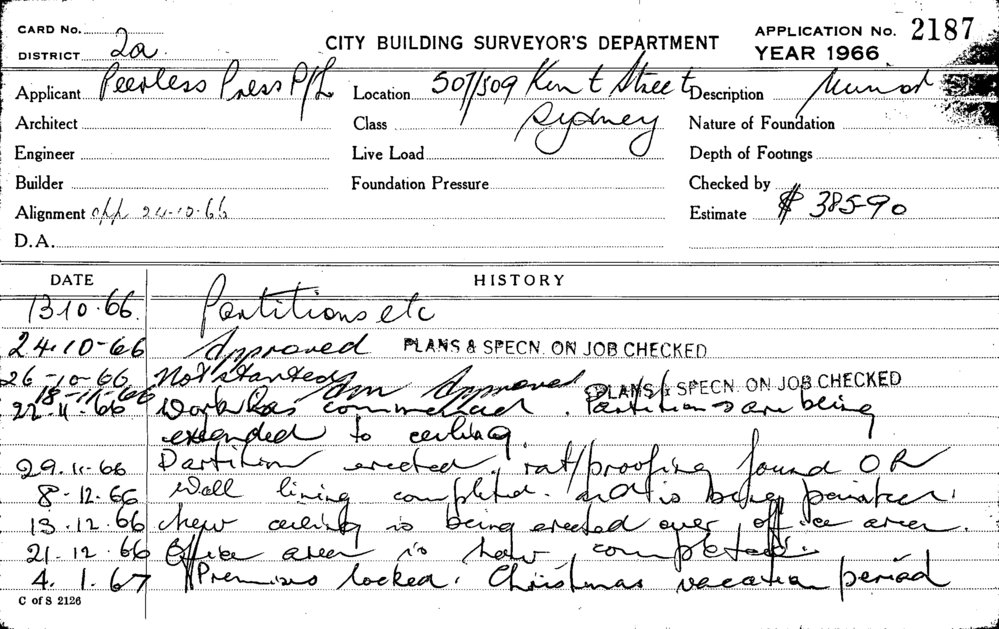 CARD No.
DISTRICT 2a
CITY BUILDING SURVEYOR'S DEPARTMENT
APPLICATION No. 2187
YEAR 1966
Applicant Peerless Press P/L Location 507/509 Kent Street Description Minor
Architect Class Sydney Nature of Foundation
Engineer Live Load Depth of Footings
Builder Foundation Pressure Checked by
Alignment opp 24-10-66 Estimate $ 385-90
D.A.
DATE HISTORY
13.10.66. Partitions etc
24.10-66 Approved PLANS & SPECN. ON JOB CHECKED
26-10-66 Not started
18-11-66 Am Approved PLANS & SPECN. ON JOB CHECKED
22-11-66 Work has commenced. Partitions are being
extended to ceiling.
29.11.66 Partition erected, rat/proofing found OK
8-12.66 Wall lining completed. is being painted.
13.12.66 New ceiling is being erected over office area.
21.12.66 Office area is now completed.
4.1.67 Premises locked. Christmas vacation period
C of S 2126